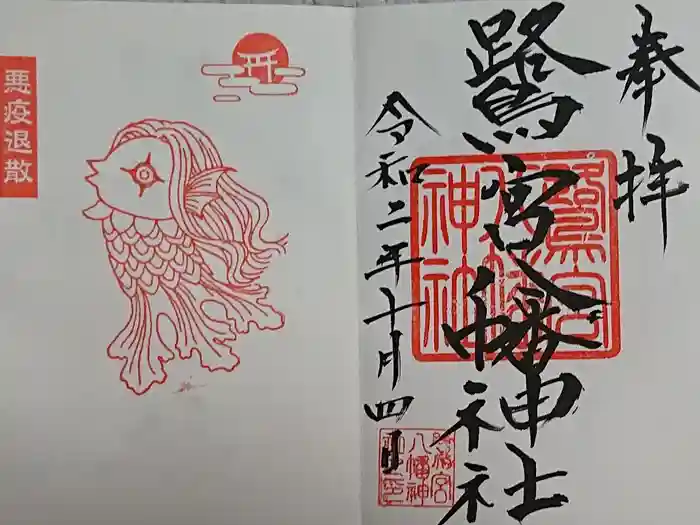 奉拝
鷺宮八幡神社
令和二年十月四日
鷺宮
八幡
神社
八幡神
悪疫退散